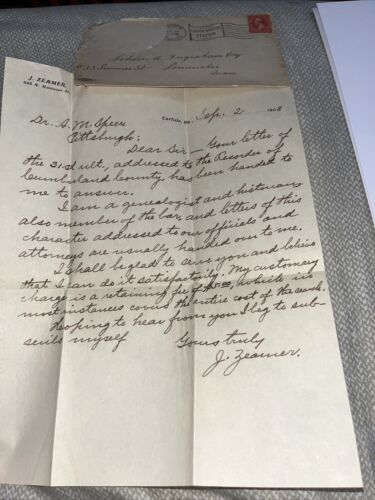 J. ZEAMER,
Carlisle, Pa., Sep. 2 1908
Dr. A. M. Speer
Pittsburgh:
Dear Sir — Your letter of
the 31st ult, addressed to the Recorder of
Cumberland County, has been handed to
me to answer.
I am a genealogist and historian
also member of the bar, and letters of this
character addressed to our officials and
attorneys are usually handed over to me.
I shall be glad to serve you and believe
that I can do it satisfactorily. My customary
charge is a retaining fee of which in
most instances covers the entire cost of the search.
Hoping to hear from you I beg to sub-
scribe myself Yours truly
J. Zeamer.